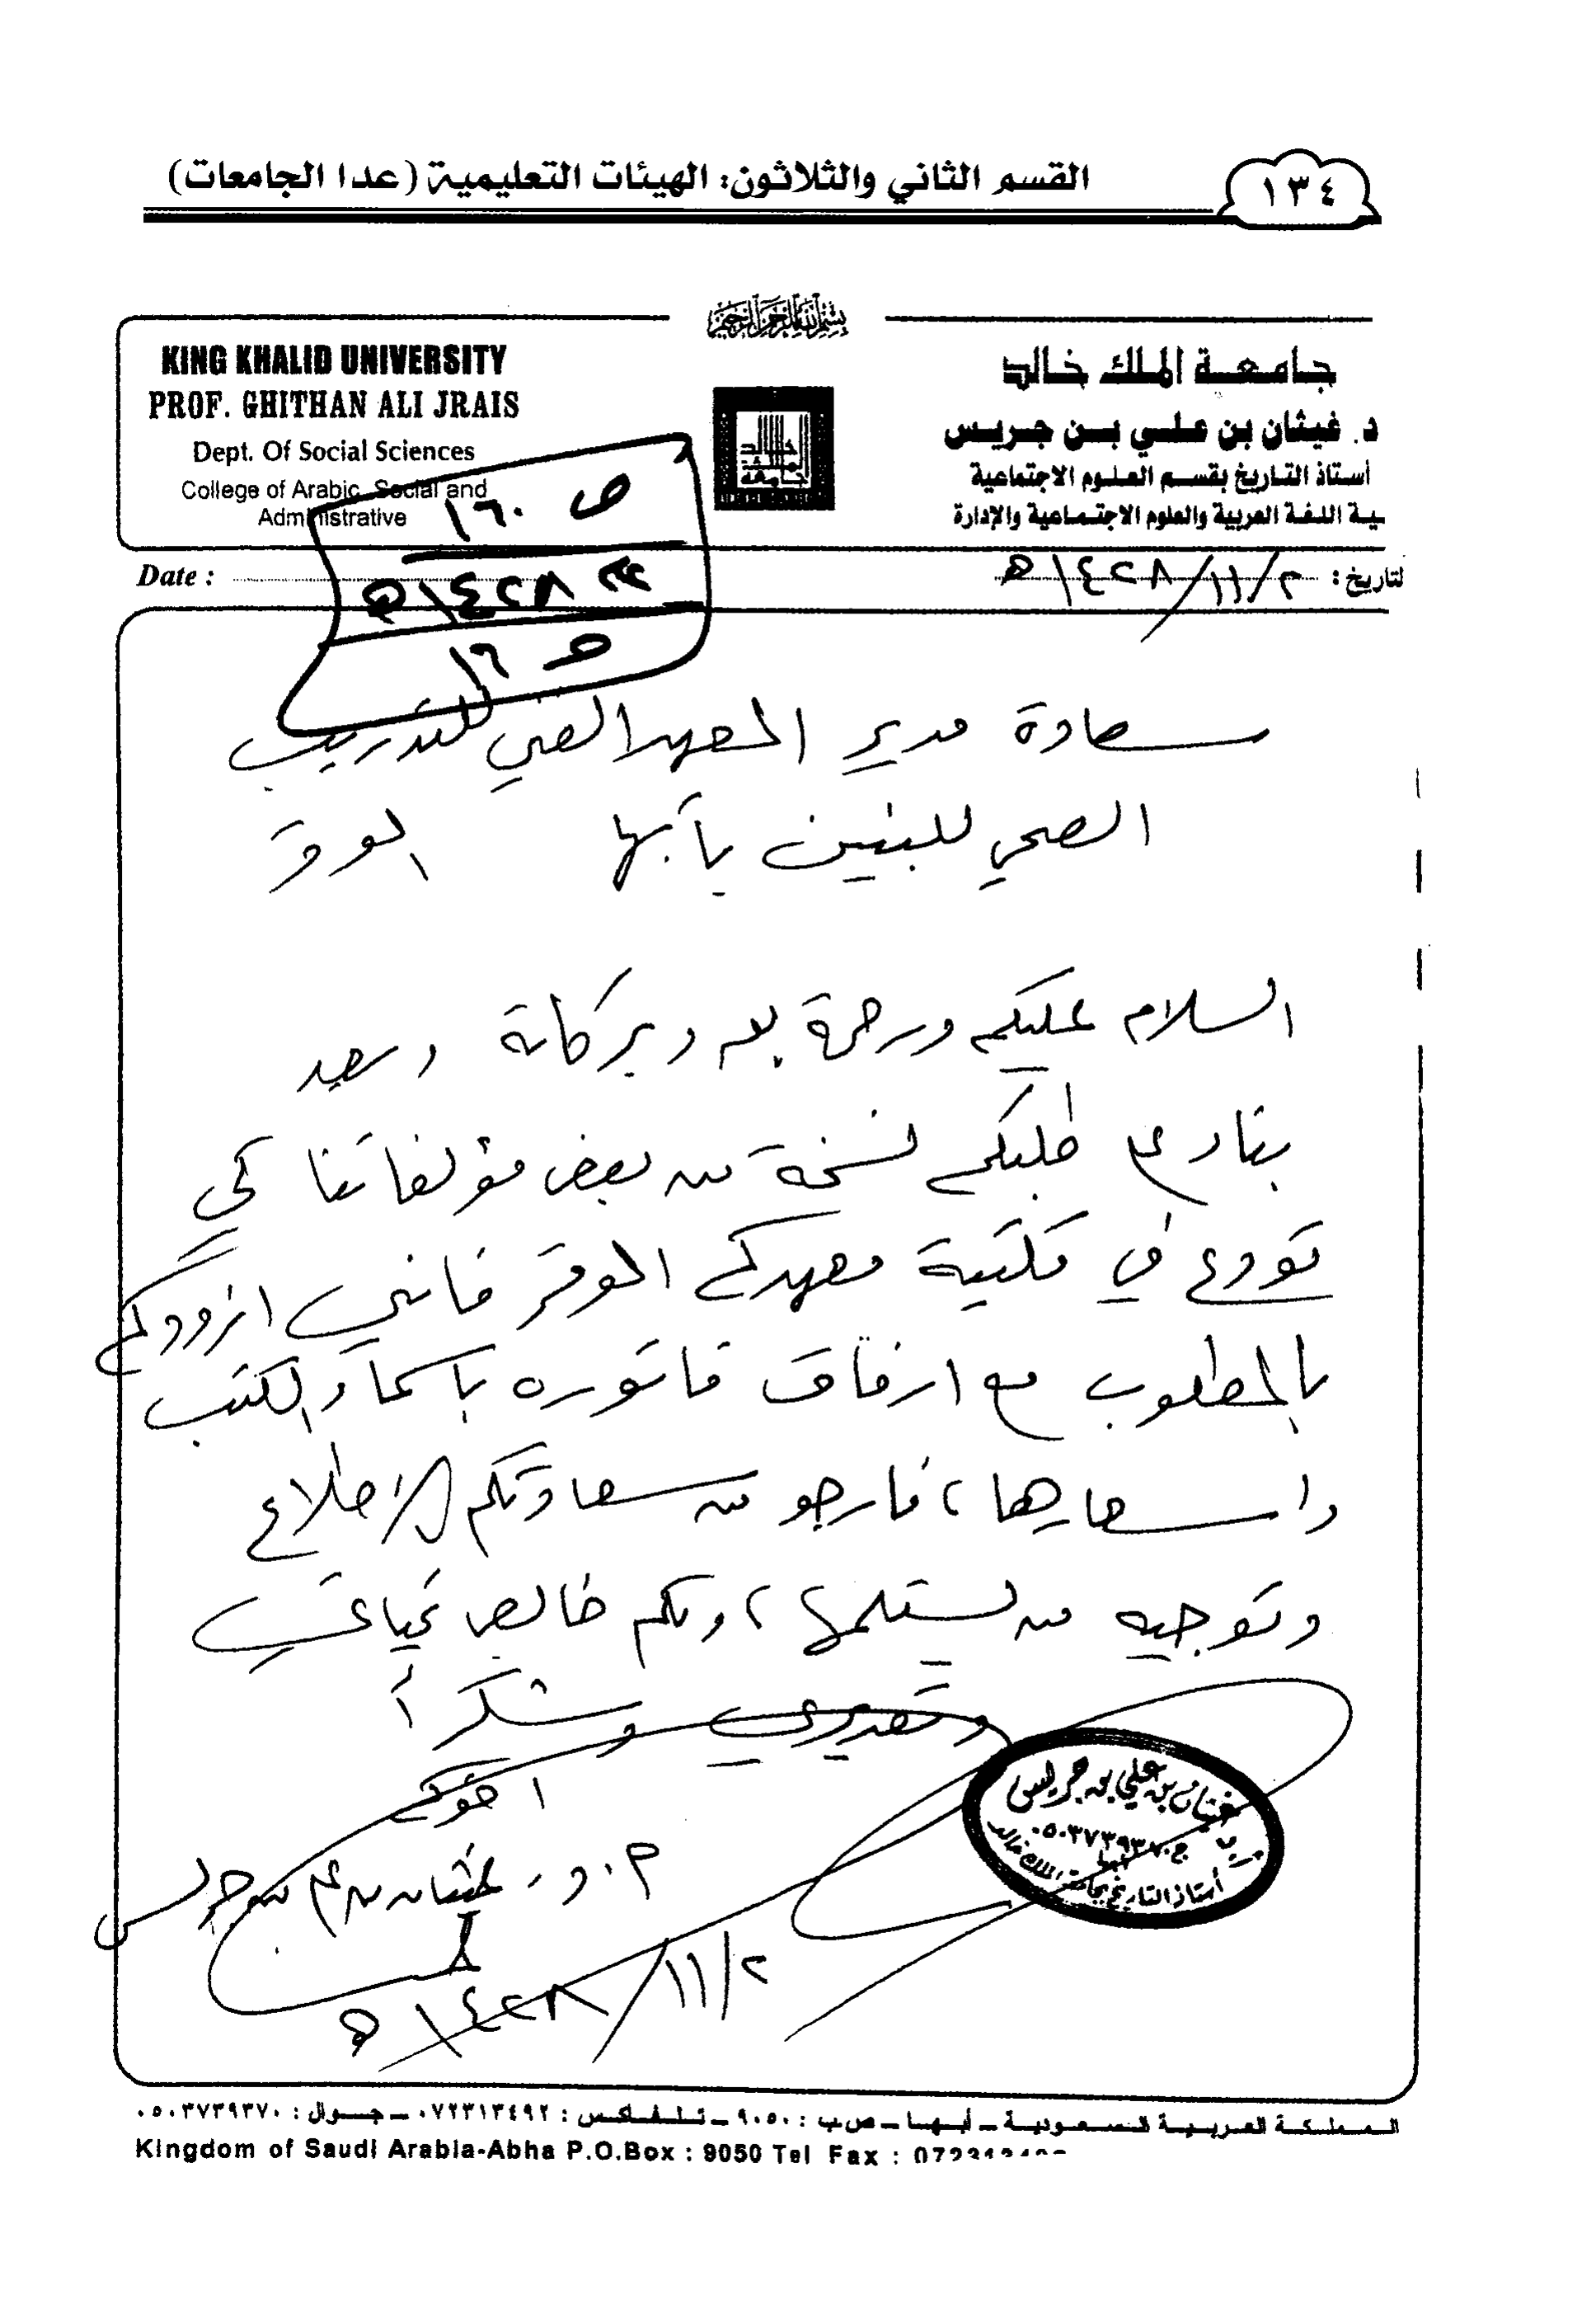 ١٣٤
القسم الثاني والثلاثون: الهيئات التعليمية (عدا الجامعات)
بسم الله الرحمن الرحيم
جامعة الملك خالد
د. غيثان بن علي بن جريس
أستاذ التاريخ بقسم العلوم الاجتماعية
ـية اللغة العربية والعلوم الاجتماعية والإدارة
KING KHALID UNIVERSITY
PROF. GHITHAN ALI JRAIS
Dept. Of Social Sciences
College of Arabic, Social and
Administrative
ص ١٦٠
١٤٢٨هـ
١٦
لتاريخ: ٢/١١/١٤٢٨هـ
Date :
سعادة مدير المعهد الصحي للتدريب
الصحي للبنين بأبها الموقر
السلام عليكم ورحمة الله وبركاته وبعد
بناء على طلبكم نسخة من بعض مؤلفاتنا كي
تودع في مكتبة معهدكم الموقر فانني ازودكم
بالمطلوب مع ارفاق فاتوره باسماء الكتب
واسعارها، فارجو من سعادتكم الاطلاع
وتوجيه من يستلمها، ولكم خالص تحياتي
وتقديري وشكراً
اخوكم
أ.د. غيثان بن علي بن جريس
٢/١١/١٤٢٨هـ
غيثان بن علي بن جريس
ج ٠٥٠٣٧٣٩٣٧٠
أبها
أستاذ التاريخ بجامعة الملك خالد
المملكة العربية السعودية ـ أبها ـ ص ب : ٩٠٥٠ ـ تلفاكس : ٠٧٢٣١٣٤٩٢ ـ جوال : ٠٥٠٣٧٣٩٣٧٠
Kingdom of Saudi Arabia-Abha P.O.Box : 9050 Tel Fax :